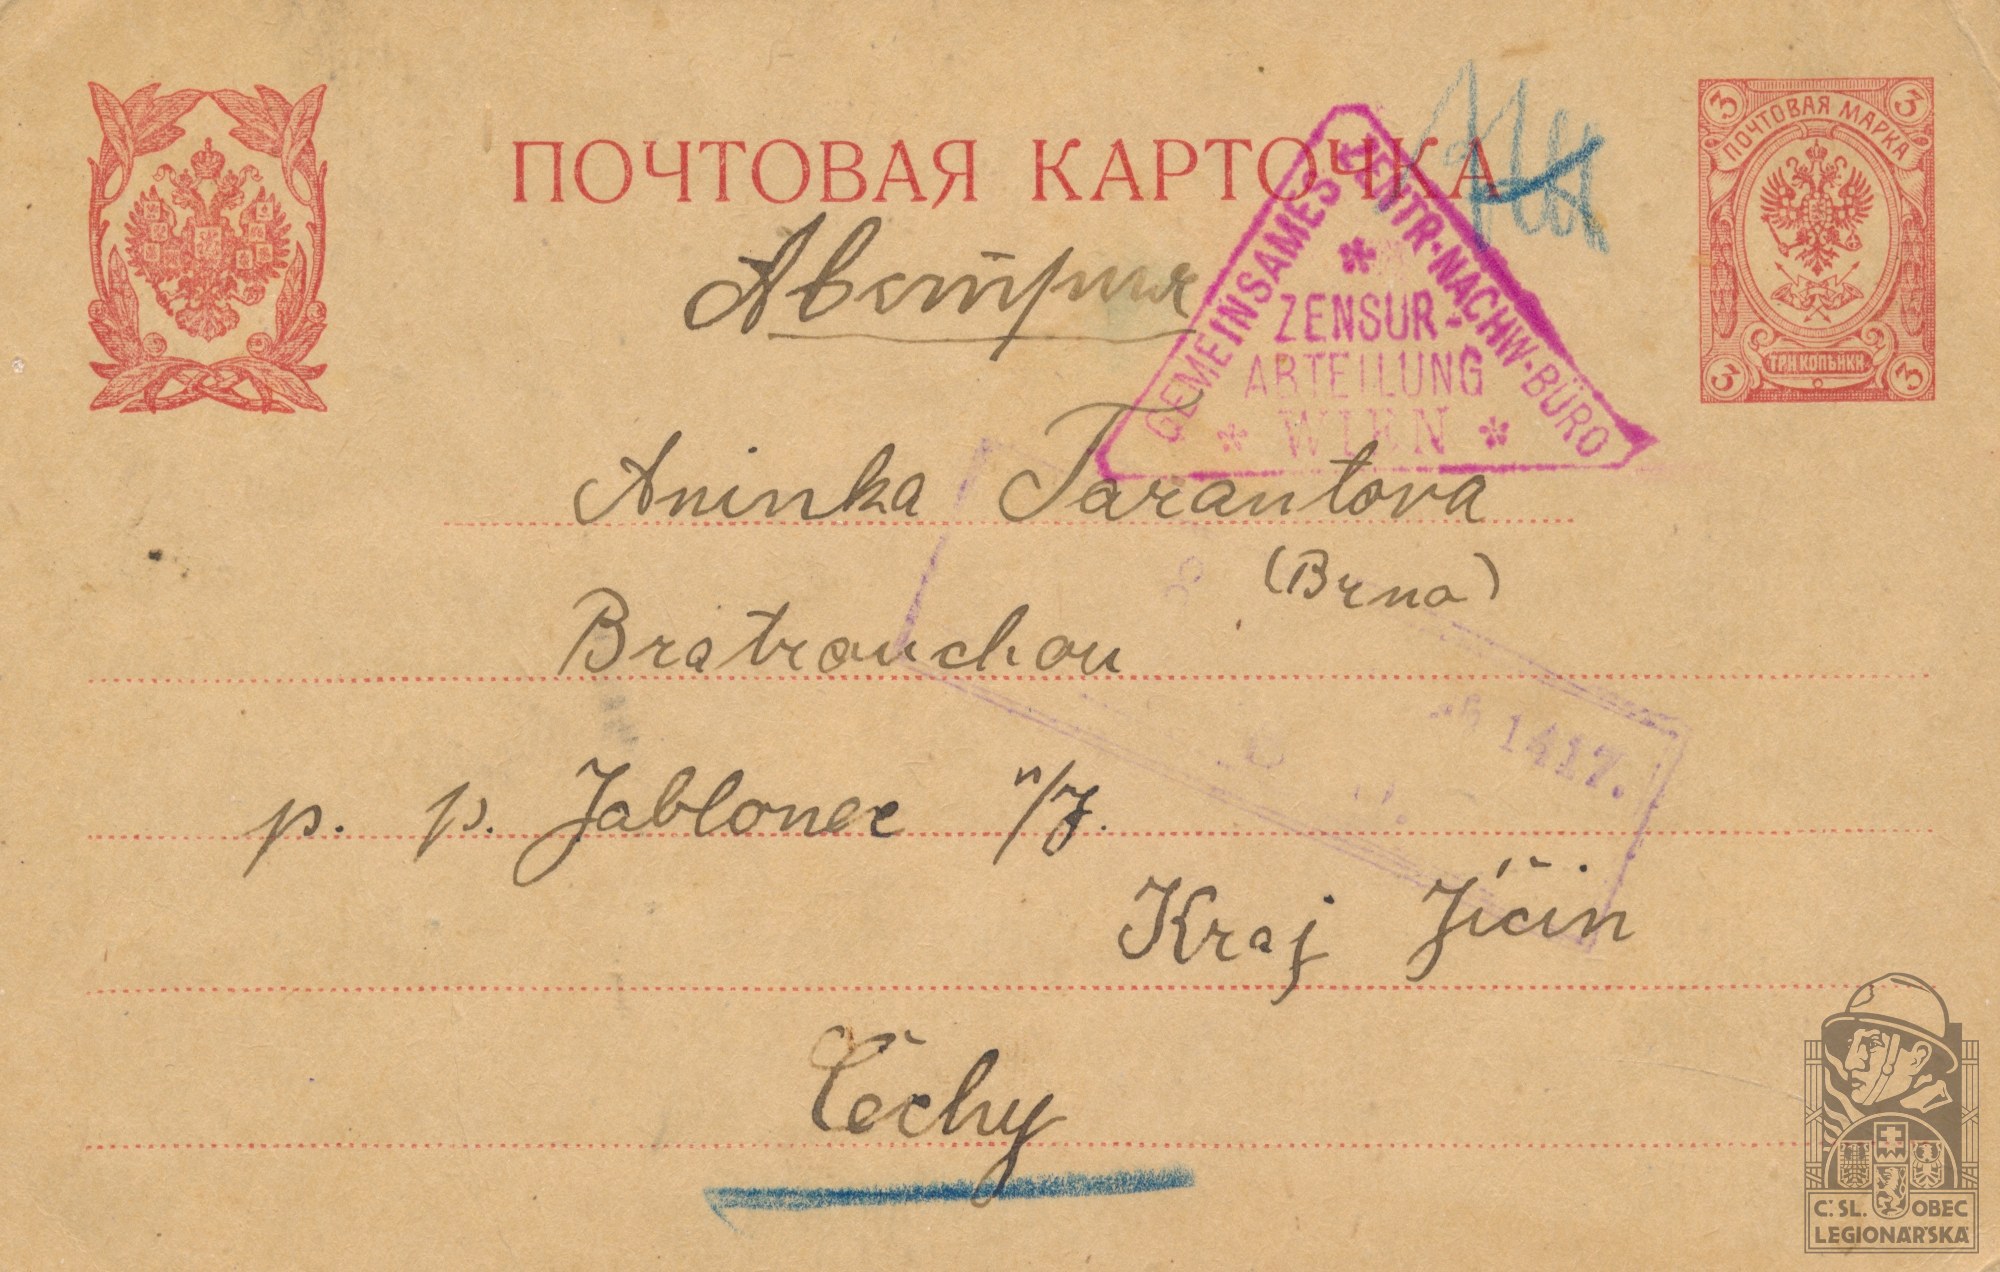 ПОЧТОВАЯ КАРТОЧКА
3 3
ПОЧТОВАЯ МАРКА
ТРИ КОПѢЙКИ
3 3
Австрия
GEMEINSAMES ZENTR.-NACHW-BÜRO
ZENSUR-
ABTEILUNG
WIEN
Aninka Tarantova
(Brna)
Bratrouchou
1417.
p. p. Jablonec n/J.
Kraj Jíčin
Čechy
Č. SL. OBEC
LEGIONÁŘSKÁ